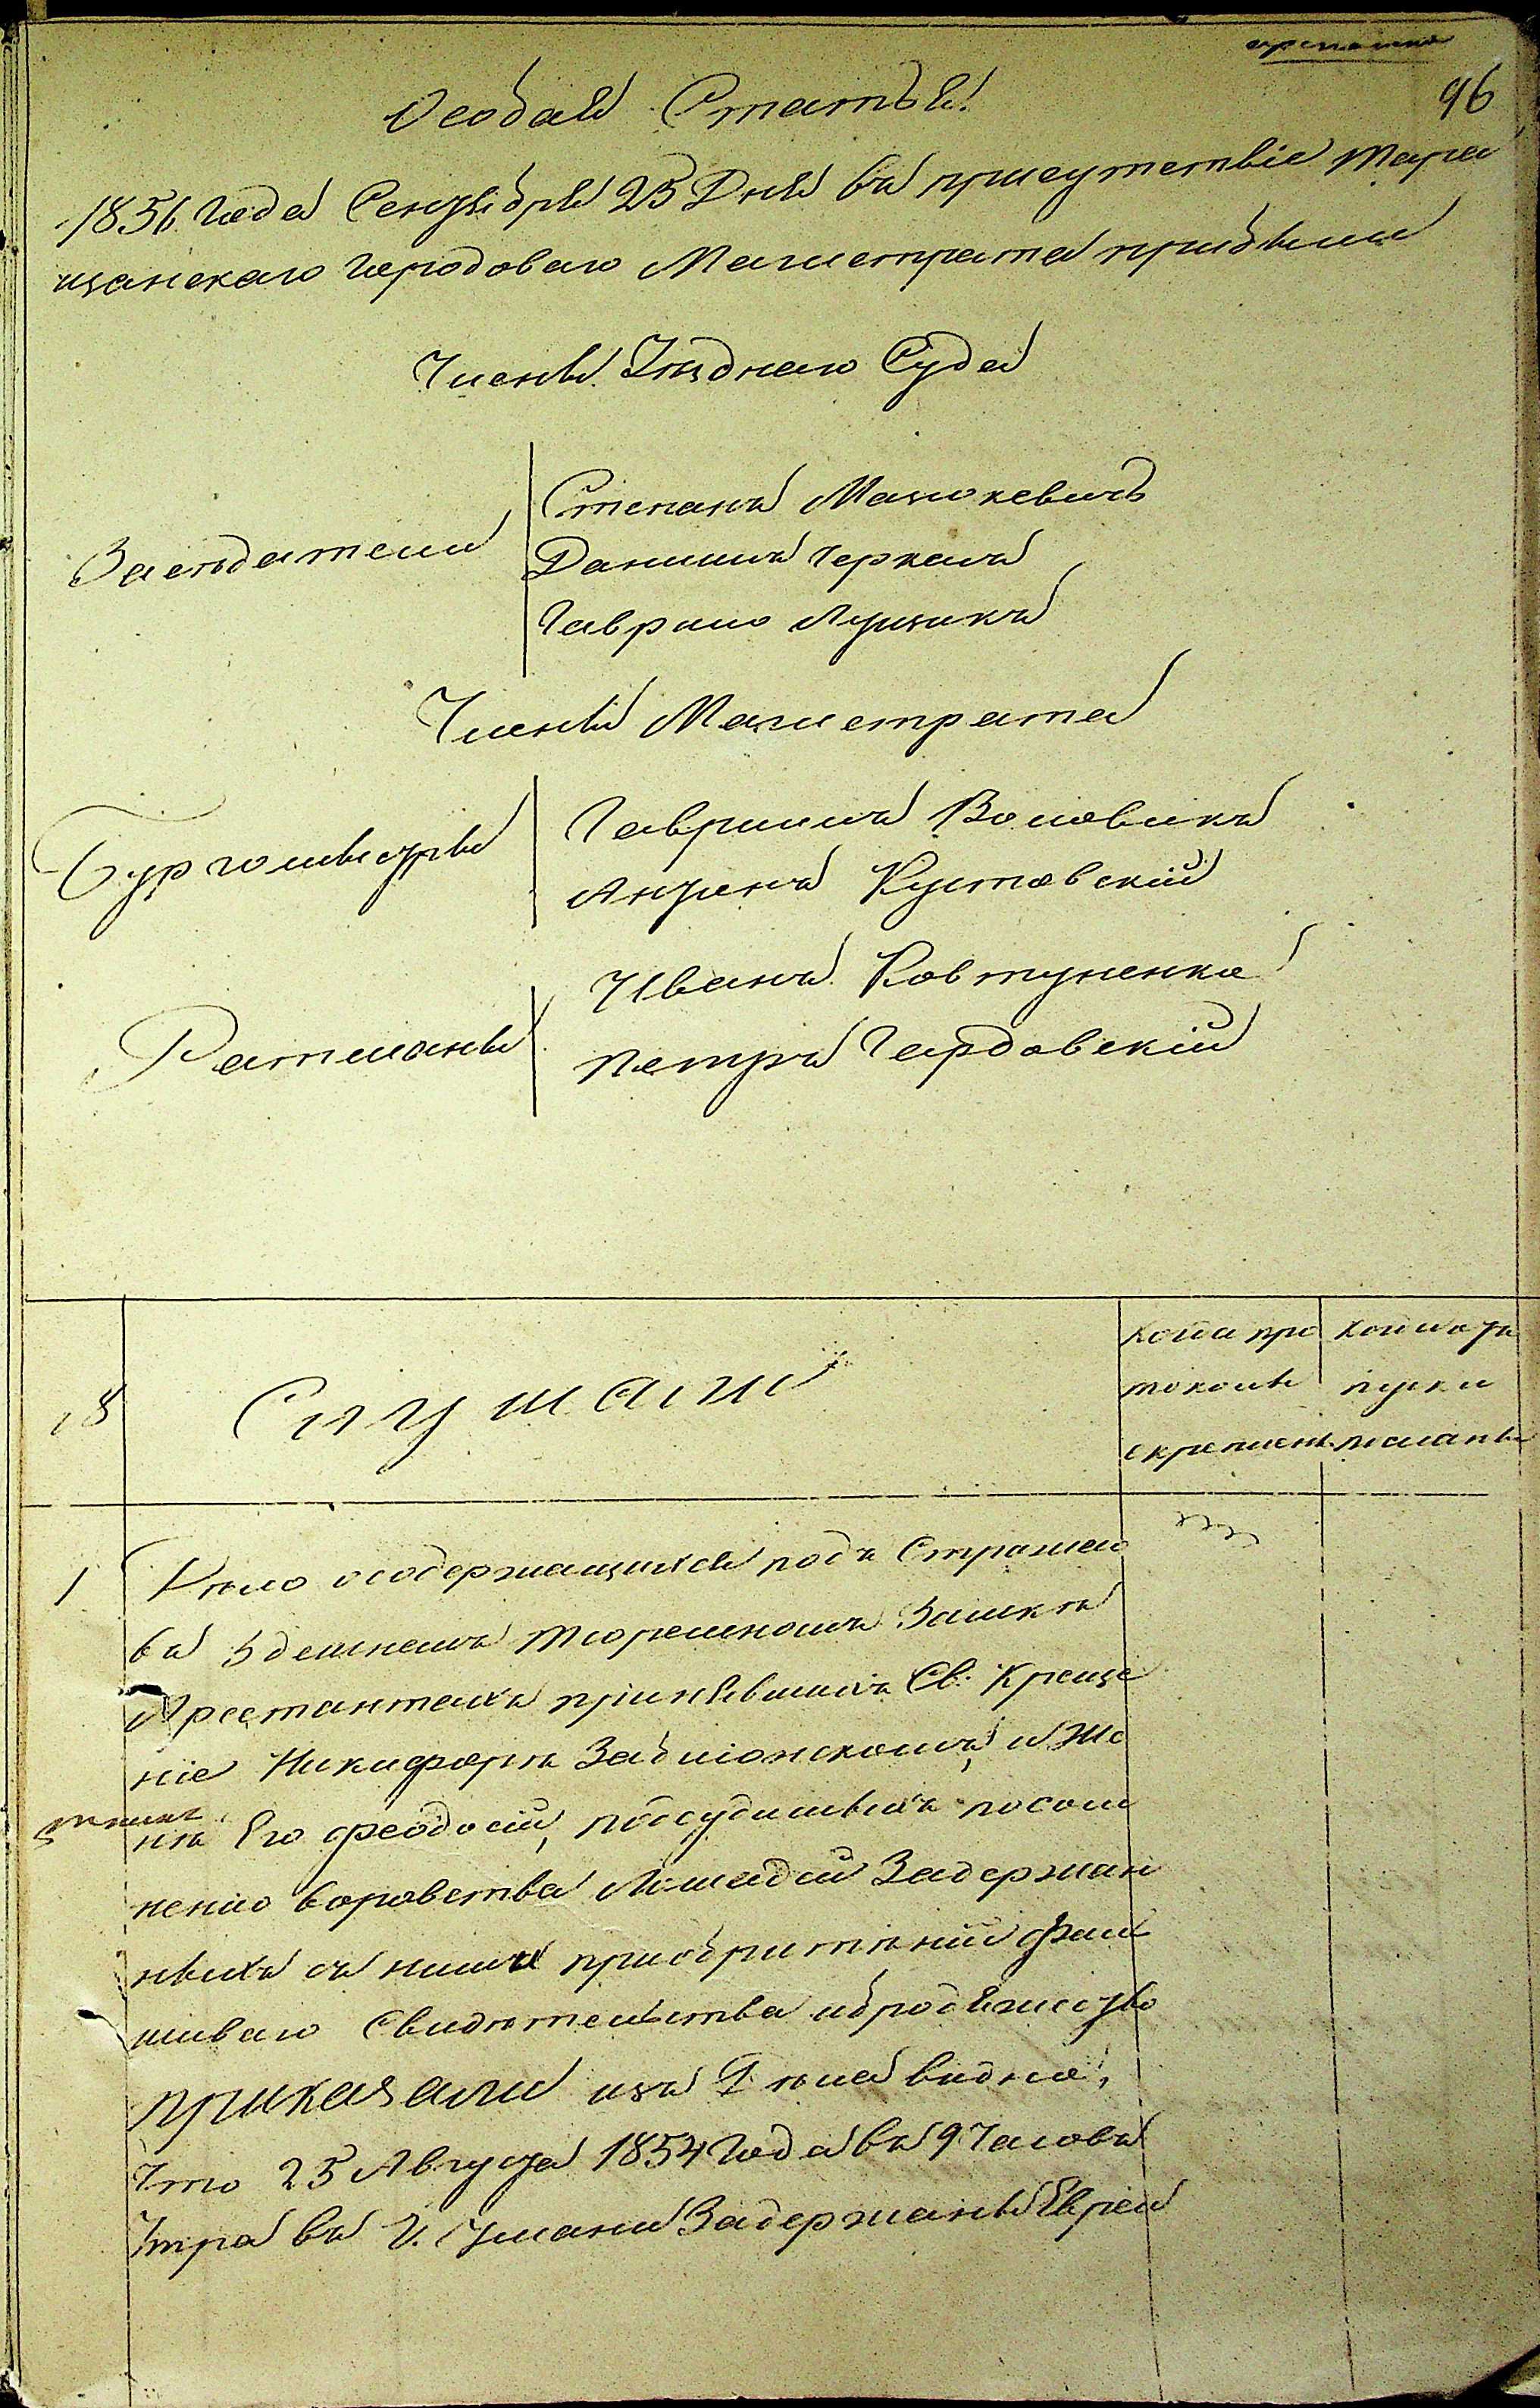 96
Особая Статья.
1856 года Сентября 25 Дня въ присутствіе Тара
щанскаго городоваго Магистрата прибыли
Члены Уѣзднаго Суда
Засѣдатели
Степанъ Мацюкевичъ
Даниилъ Черкасъ
Гаврило Лущикъ
Члены Магистрата
Бургомистры
Гавриилъ Воловикъ
Антонъ Кустовскій
Ратманы
Иванъ Ковтуненко
Петръ Гардовскій
18
Слушали
когда про
токолъ
скрепленъ
когда
писаны
1
Дѣло о содержащихся подъ Стражею
въ Здешнемъ тюремномъ Замкѣ
Арестантахъ принявшихъ Св: Креще
ніе Никифорѣ Заблонскомъ, и Же
нѣ Его Феодосіи, подсудимыхъ по сом
нению воровства Лошадей Задержан
ныхъ съ ними приобритѣніи фаль
шиваго Свидѣтельства и бродяжество
приказали изъ Дѣла видно,
Что 25 Августа 1854 года въ 9 Часовъ
Утра въ г. Умани Задержаны Евреи